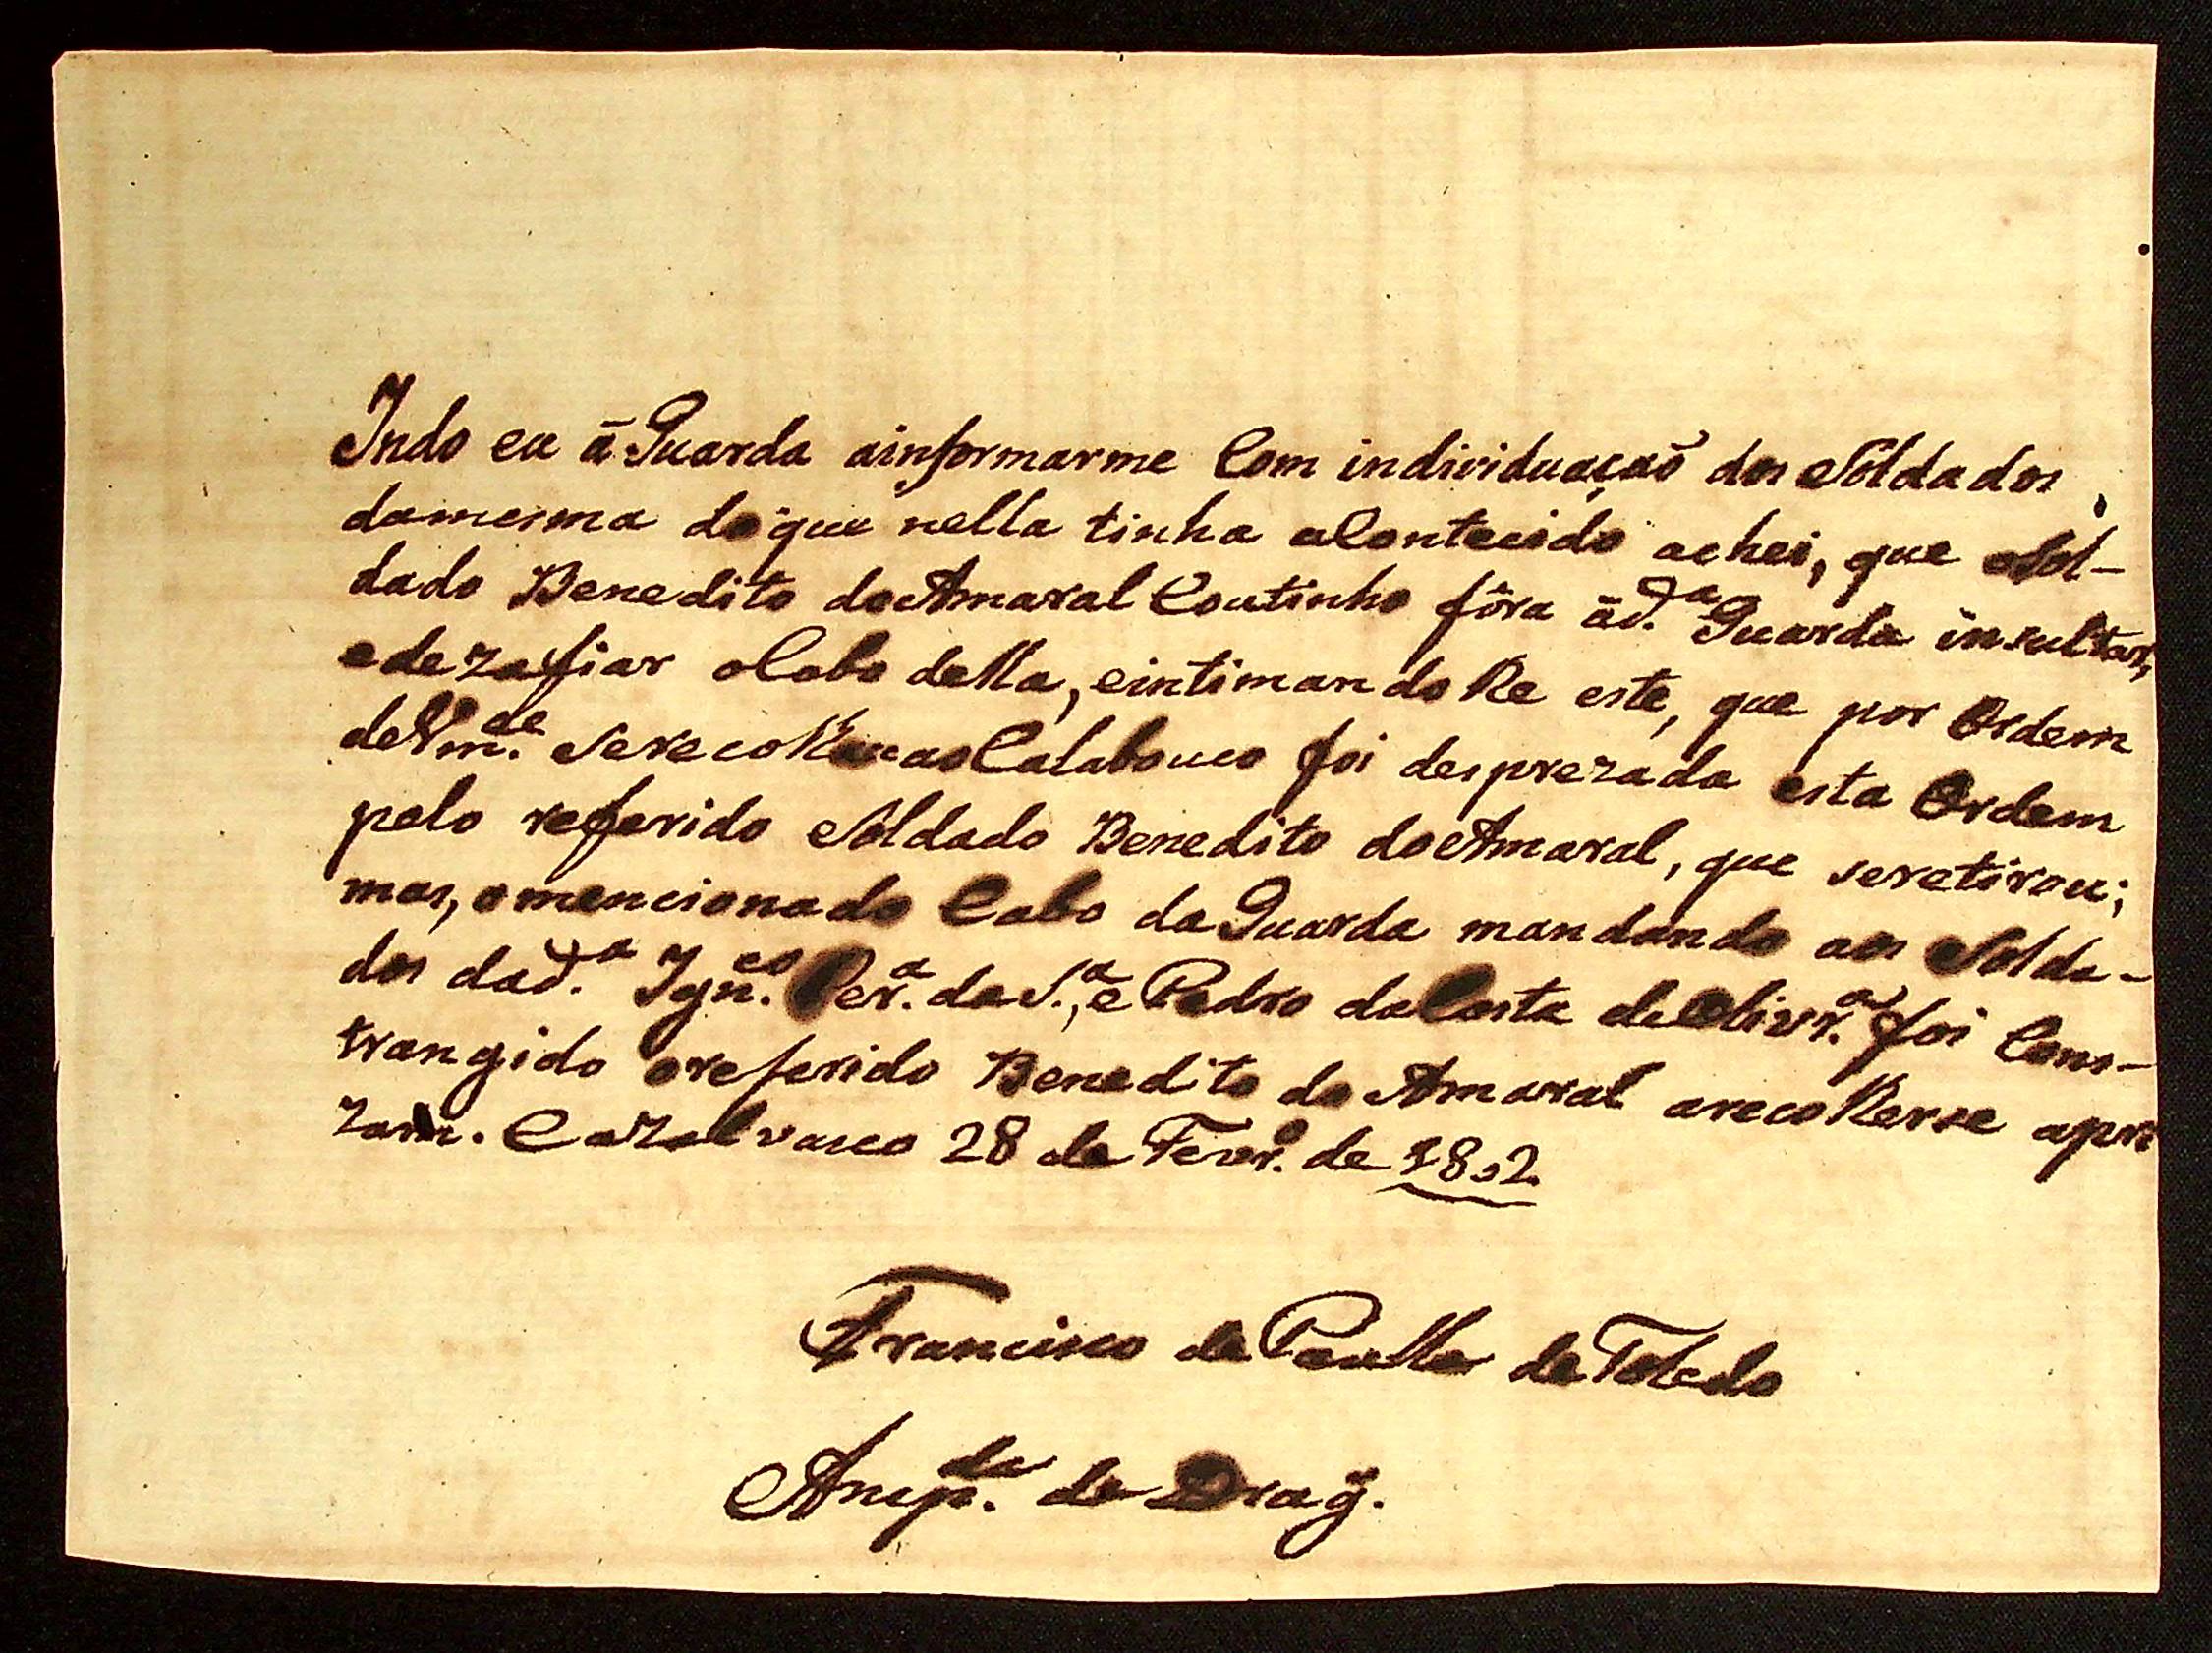 Indo eu á Guarda ainformarme Com individuaçaõ dos Soldados,
damesma doque nella tinha aContecido achei, que oSol-
dado Benedito doAmaral Coutinho fôra ád.ª Guarda insultar,
edezafiar oCabo della, eintimandolhe este, que por Ordem
deVm.ce serecolhece aoCalabouco foi desprezada esta Ordem
pelo referido Soldado Benedito doAmaral, que seretirou;
mas, omencionado Cabo daGuarda mandando aos Solda-
dos dad.ª Ign.co Per.ª da S.ª, e Pedro daCosta deOlivr.ª foi Cons-
trangido oreferido Benedito do Amaral arecolherse apri
zam. Cazalvasco 28 de Fever.o de 1802
Francisco de Paulla de Toledo
Ansp.da de Drag.